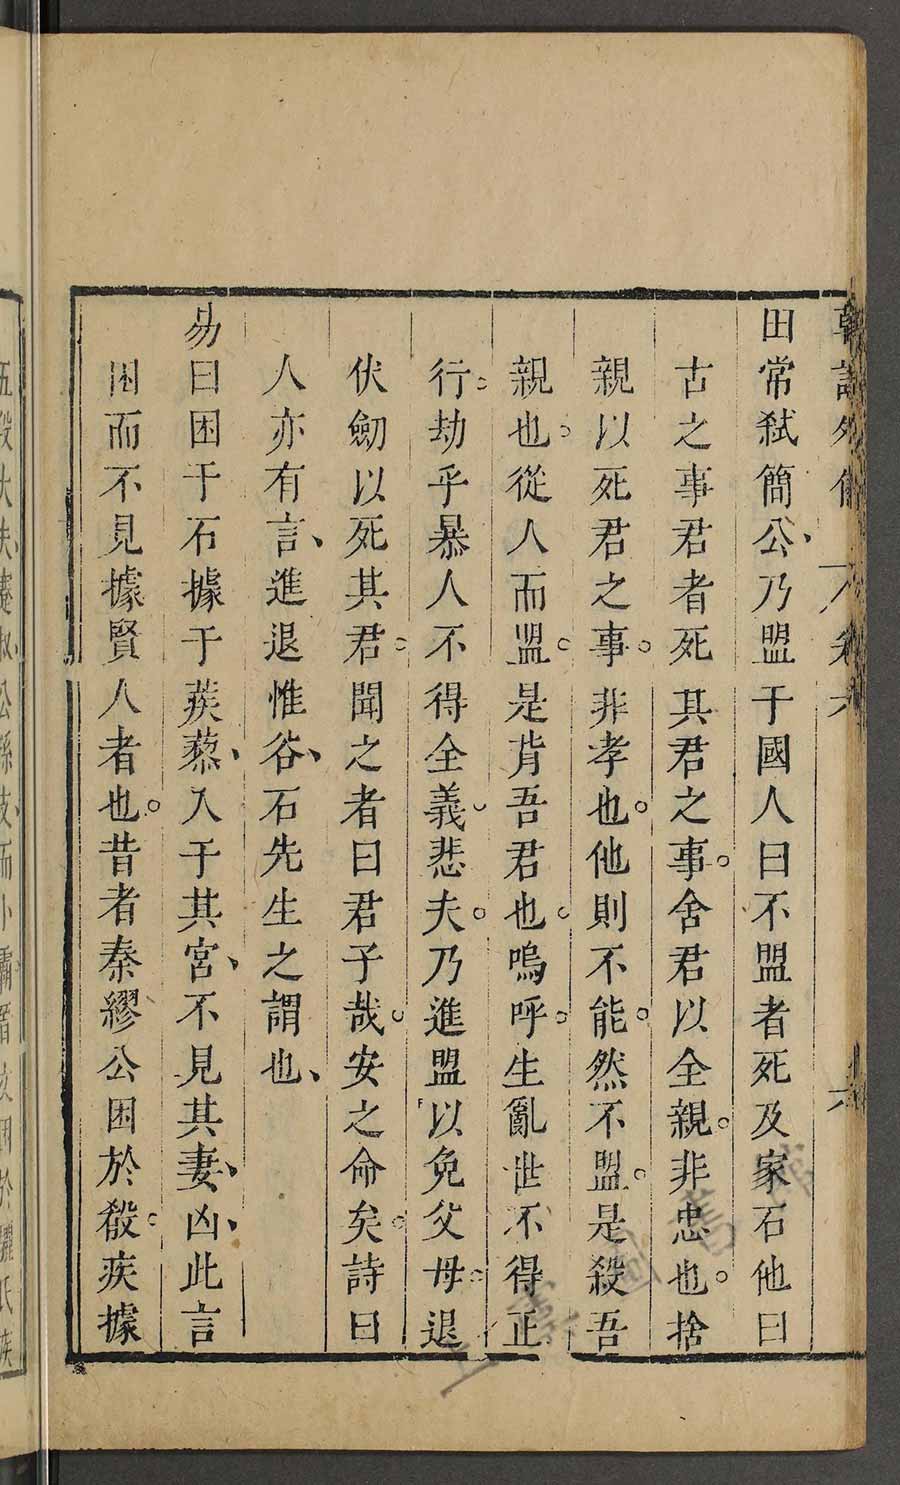 韓詩外傳 卷六 六
田常弒簡公、乃盟于國人曰不盟者死及家石他曰
古之事君者死其君之事。舍君以全親。非忠也。捨
親以死君之事。非孝也。他則不能。然不盟。是殺吾
親也。從人而盟。是背吾君也。嗚呼。生亂世不得正
行。劫乎暴人不得全義。悲夫。乃進盟以免父母。退
伏劒以死其君。聞之者曰君子哉。安之命矣。詩曰
人亦有言、進退惟谷、石先生之謂也、
易曰困于石據于蒺藜、入于其宮、不見其妻、凶、此言
困而不見據賢人者也。昔者秦繆公困於殽。疾據
五羖大夫、蹇叔、公孫支、而小霸晉文困於驪氏疾